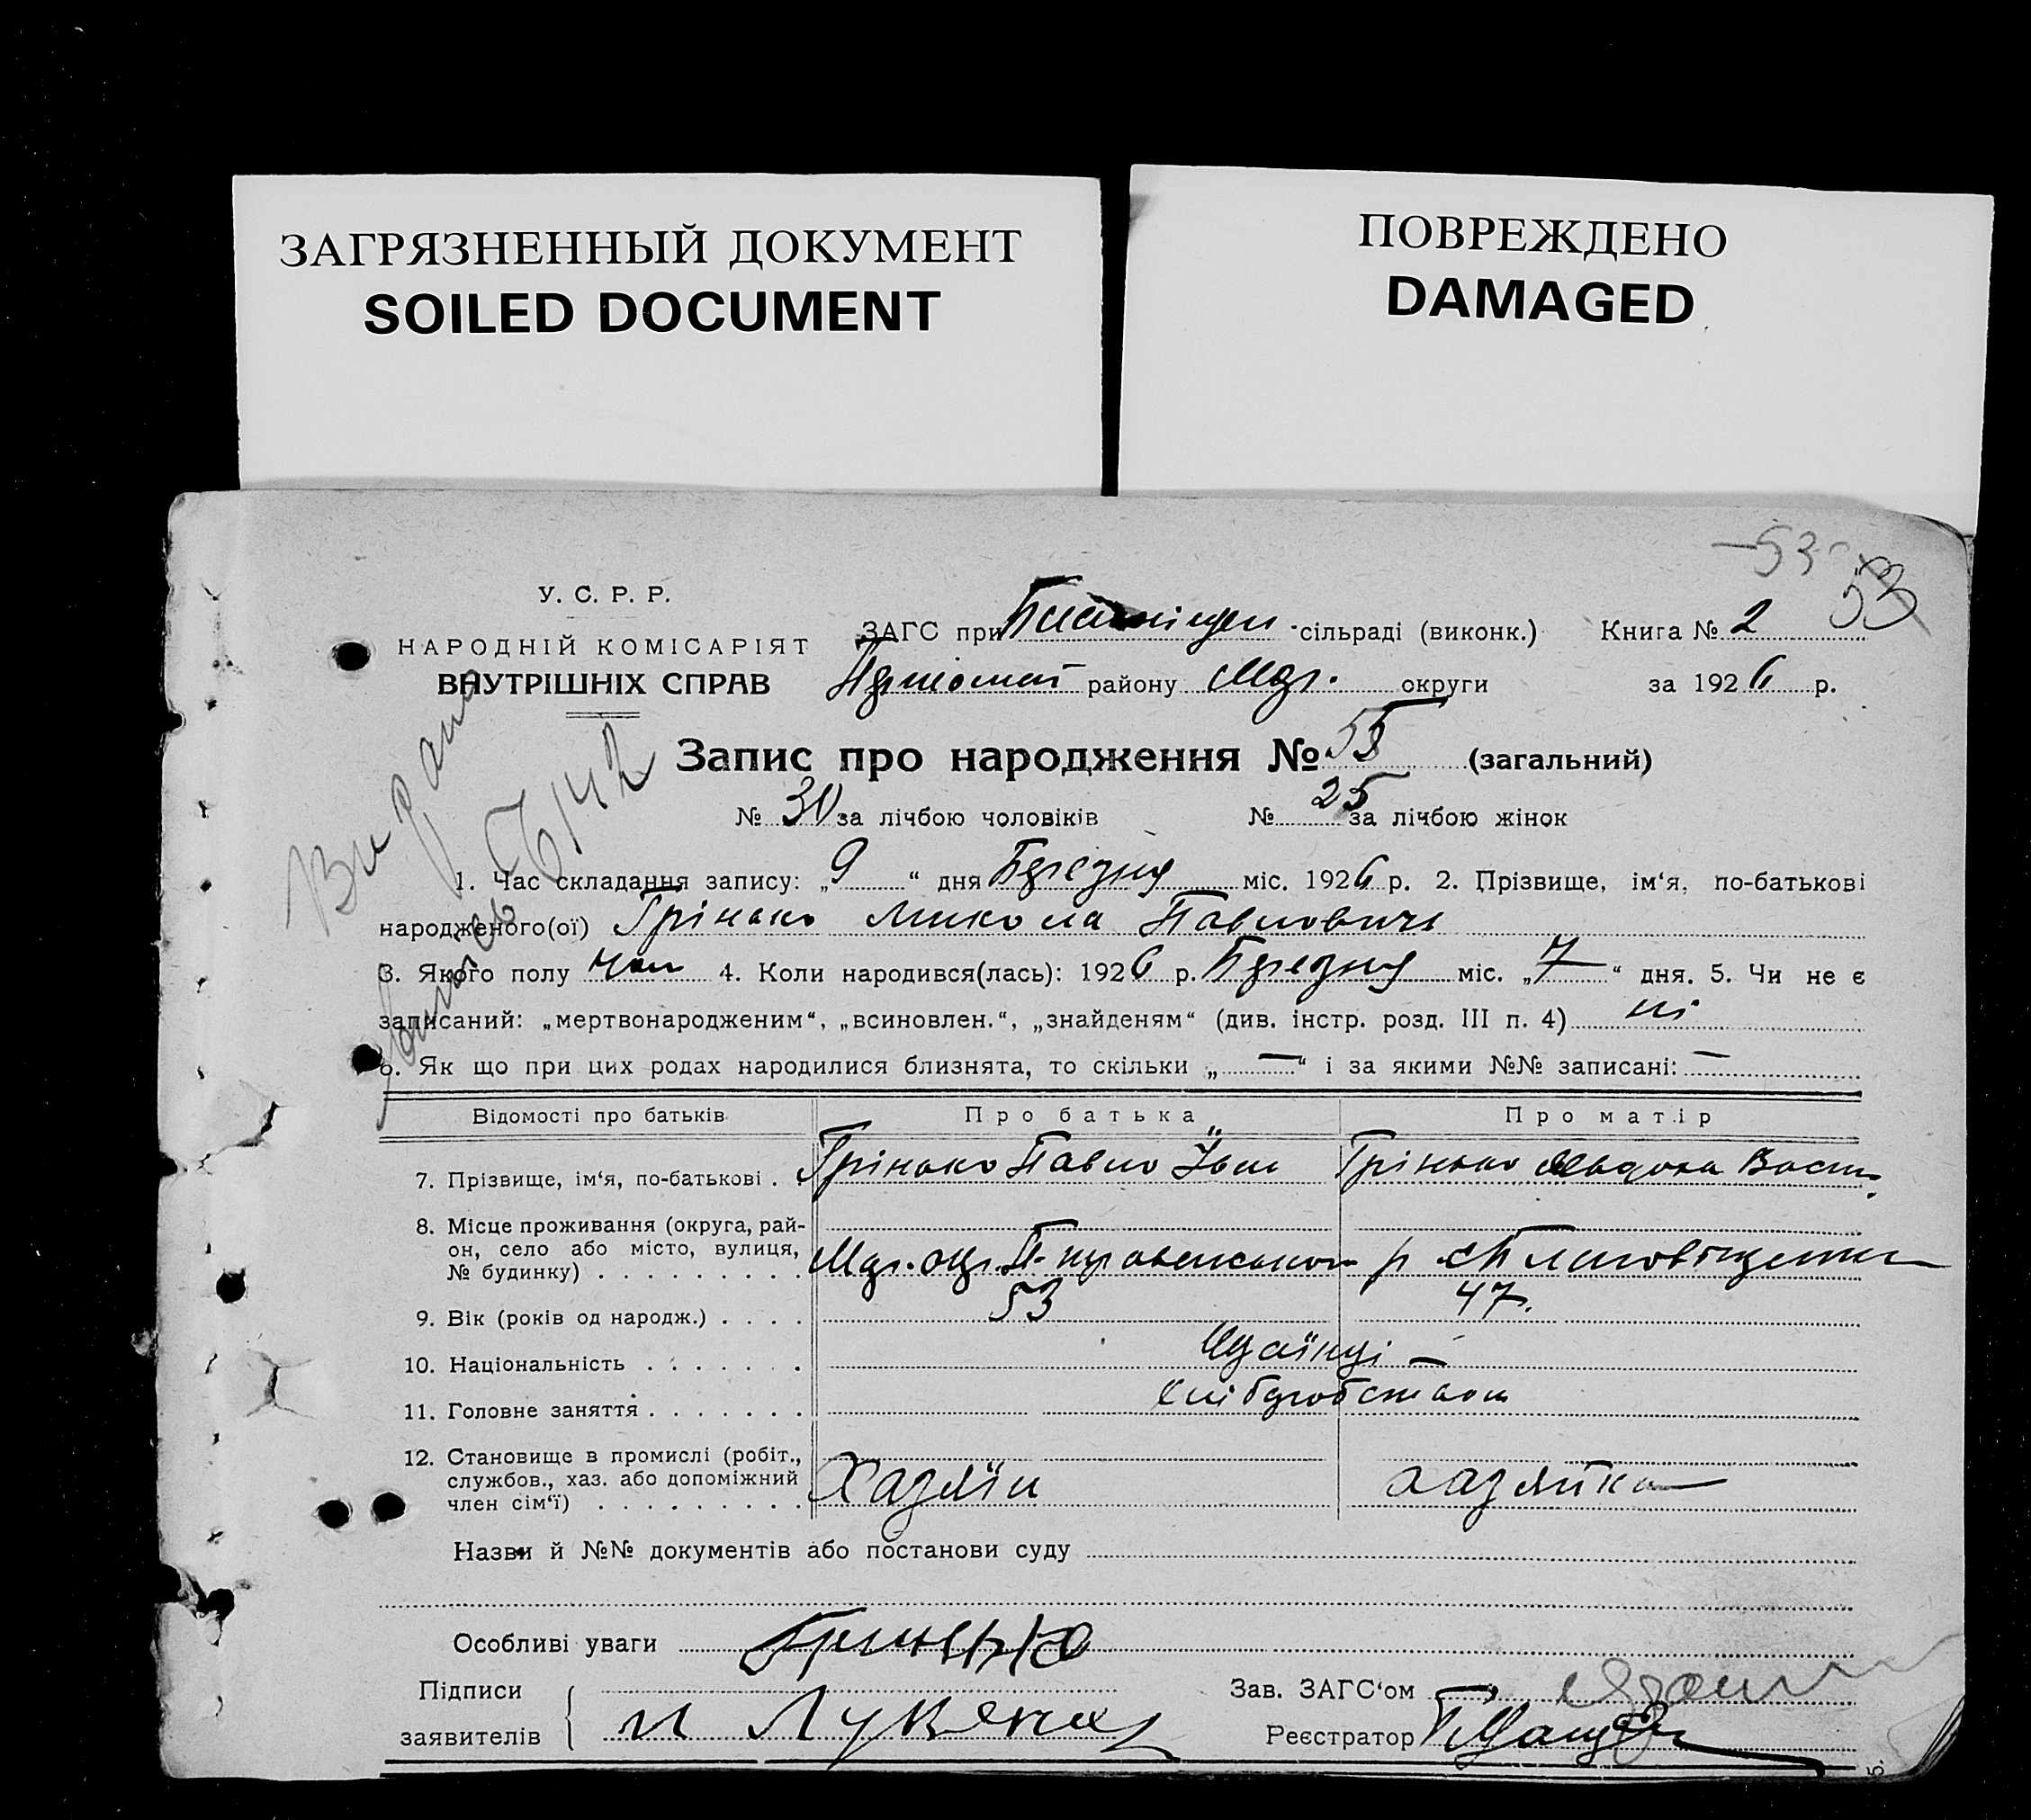 ЗАГРЯЗНЕННЫЙ ДОКУМЕНТ
SOILED DOCUMENT
ПОВРЕЖДЕНО
DAMAGED
53
53
У. С. Р. Р.
НАРОДНІЙ КОМІСАРІЯТ
ВНУТРІШНІХ СПРАВ
ЗАГС при сільраді (виконк.) Книга № 2
району Мор. округи за 1926 р.
Запис про народження № 55 (загальний)
№ 30 за лічбою чоловіків № 25 за лічбою жінок
1. Час складання запису: „9“ дня Березня міс. 1926 р. 2. Прізвище, ім‘я, по-батькові
народженого(ої) Грінько Микола Павлович
3. Якого полу чол 4. Коли народився(лась): 1926 р. Березня міс. „7“ дня. 5. Чи не є
записаний: „мертвонародженим“, „всиновлен.“, „знайденям“ (див. інстр. розд. III п. 4) ні
6. Як що при цих родах народилися близнята, то скільки „—“ і за якими №№ записані: —
Відомості про батьків Про батька Про матір
7. Прізвище, ім‘я, по-батькові . . Грінько Павло Їван Грінько Явдоха Васил.
8. Місце проживання (округа, рай-
он, село або місто, вулиця,
№ будинку) . . . . . . . . .
9. Вік (років од народж.) . . . . 53 47.
10. Національність . . . . . . .
11. Головне заняття . . . . . . . хліборобством
12. Становище в промислі (робіт.,
службов., хаз. або допоміжний
член сім‘ї) . . . . . . . . . Хазяїн хазяйка
Назви й №№ документів або постанови суду
Особливі уваги
Підписи
заявителів
Зав. ЗАГС‘ом
Реєстратор